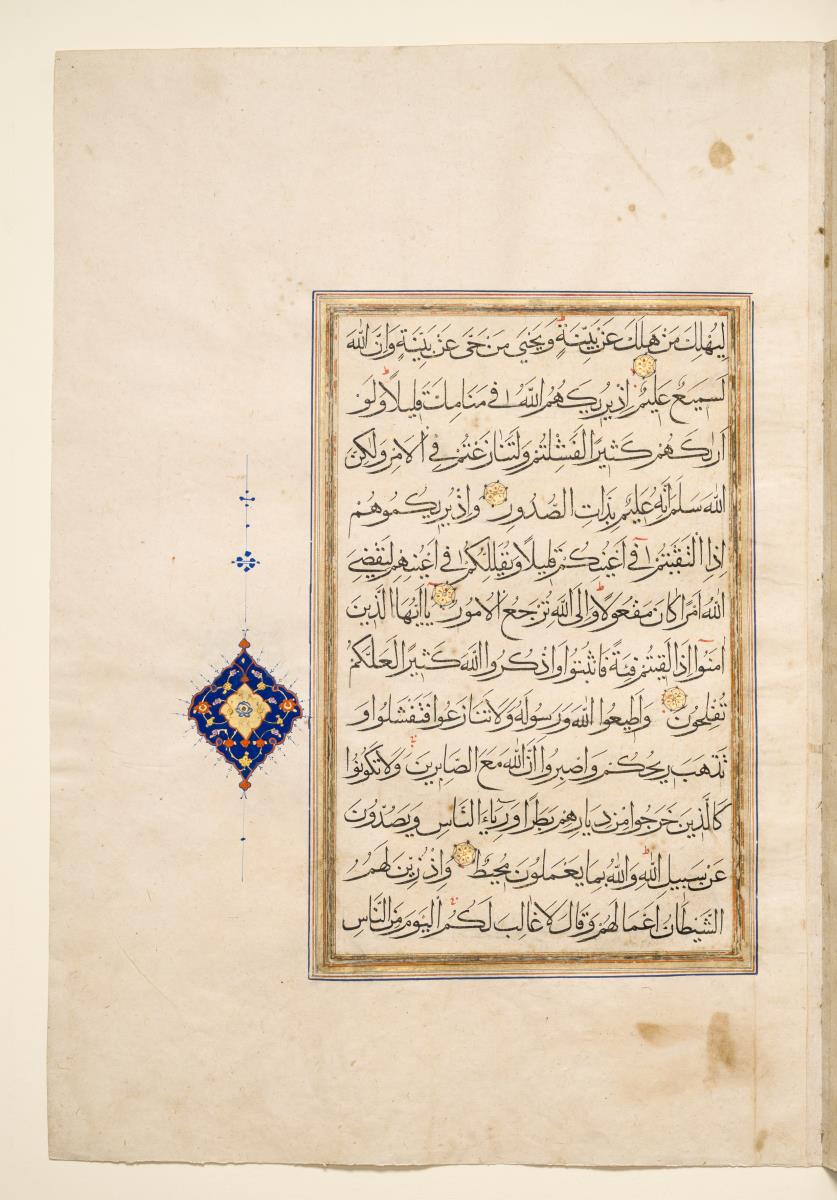 لِيَهْلِكَ مَنْ هَلَكَ عَنْ بَيِّنَةٍ وَيَحْيَىٰ مَنْ حَىَّ عَنْ بَيِّنَةٍ وَاِنَّ اللّٰهَ
لَسَمِيعٌ عَلِيمٌ اِذْ يُرِيكَهُمُ اللّٰهُ فِى مَنَامِكَ قَلِيلًا وَلَوْ
اَرٰىكَهُمْ كَثِيرًا لَفَشِلْتُمْ وَلَتَنَازَعْتُمْ فِى الْاَمْرِ وَلٰكِنَّ
اللّٰهَ سَلَّمَ اِنَّهُ عَلِيمٌ بِذَاتِ الصُّدُورِ وَاِذْ يُرِيكُمُوهُمْ
اِذِ الْتَقَيْتُمْ فِى اَعْيُنِكُمْ قَلِيلًا وَيُقَلِّلُكُمْ فِى اَعْيُنِهِمْ لِيَقْضِىَ
اللّٰهُ اَمْرًا كَانَ مَفْعُولًا وَاِلَى اللّٰهِ تُرْجَعُ الْاُمُورُ يَا اَيُّهَا الَّذِينَ
اٰمَنُوا اِذَا لَقِيتُمْ فِئَةً فَاثْبُتُوا وَاذْكُرُوا اللّٰهَ كَثِيرًا لَعَلَّكُمْ
تُفْلِحُونَ وَاَطِيعُوا اللّٰهَ وَرَسُولَهُ وَلَا تَنَازَعُوا فَتَفْشَلُوا وَ
تَذْهَبَ رِيحُكُمْ وَاصْبِرُوا اِنَّ اللّٰهَ مَعَ الصَّابِرِينَ وَلَا تَكُونُوا
كَالَّذِينَ خَرَجُوا مِنْ دِيَارِهِمْ بَطَرًا وَرِئَاءَ النَّاسِ وَيَصُدُّونَ
عَنْ سَبِيلِ اللّٰهِ وَاللّٰهُ بِمَا يَعْمَلُونَ مُحِيطٌ وَاِذْ زَيَّنَ لَهُمُ
الشَّيْطَانُ اَعْمَالَهُمْ وَقَالَ لَا غَالِبَ لَكُمُ الْيَوْمَ مِنَ النَّاسِ